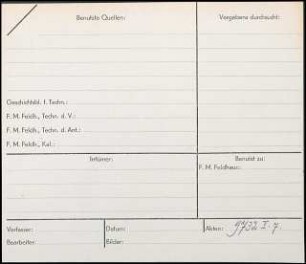 Benutzte Quellen:
Vergebens durchsucht:
Geschichtsbl. f. Techn.:
F. M. Feldh., Techn. d. V.:
F. M. Feldh., Techn. d. Ant.:
F. M. Feldh., Kul.:
Irrtümer:
Benutzt zu:
F. M. Feldhaus:
Verfasser:
Datum:
Akten:
Bearbeiter:
Bilder: